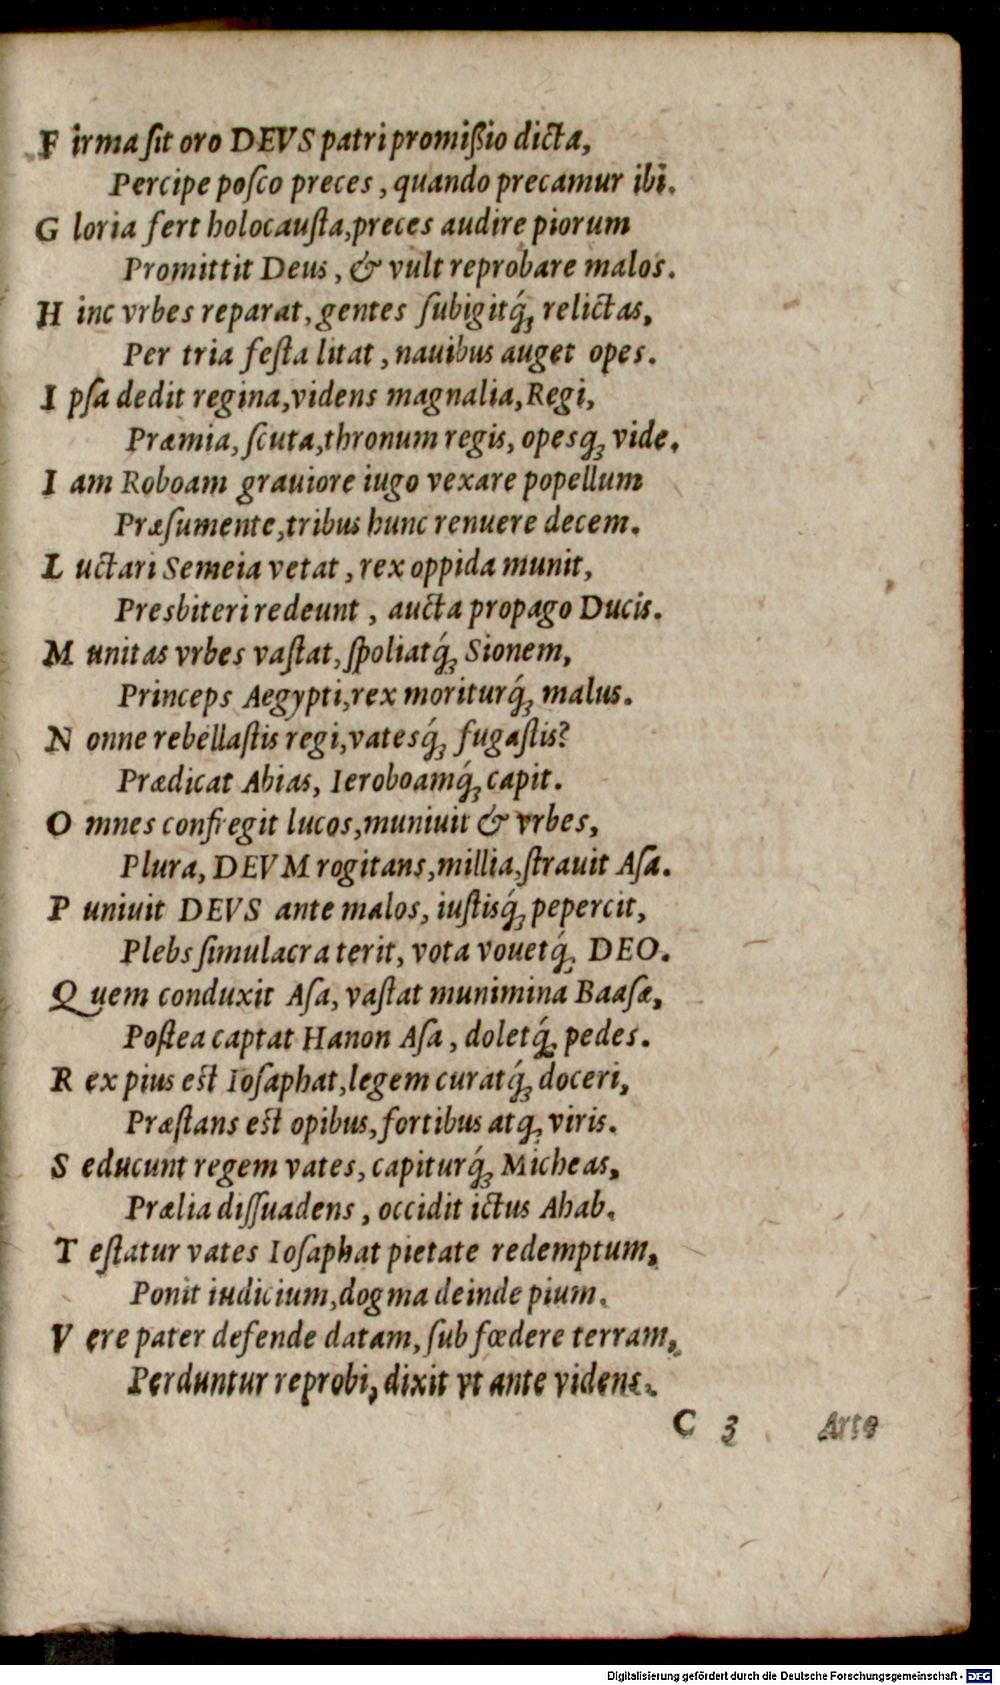 F irma ſit oro DEVS patri promißio dicta,
Percipe poſco preces, quando precamur ibi.
G loria fert holocauſta, preces audire piorum
Promittit Deus, & vult reprobare malos.
H inc vrbes reparat, gentes ſubigitq́ꝫ relictas,
Per tria feſta litat, nauibus auget opes.
I pſa dedit regina, videns magnalia, Regi,
Præmia, ſcuta, thronum regis, opesqꝫ vide.
I am Roboam grauiore iugo vexare popellum
Præſumente, tribus hunc renuere decem.
L uctari Semeia vetat, rex oppida munit,
Presbiteri redeunt, aucta propago Ducis.
M unitas vrbes vaſtat, ſpoliatq́ꝫ Sionem,
Princeps Aegypti, rex moriturq́ꝫ malus.
N onne rebellaſtis regi, vatesq́ꝫ fugaſtis?
Prædicat Abias, Ieroboamq́ꝫ capit.
O mnes confregit lucos, muniuit & vrbes,
Plura, DEVM rogitans, millia, ſtrauit Aſa.
P uniuit DEVS ante malos, iuſtisq́ꝫ pepercit,
Plebs ſimulacra terit, vota vouetq́ꝫ DEO.
Q uem conduxit Aſa, vaſtat munimina Baaſæ,
Poſtea captat Hanon Aſa, doletq́ꝫ pedes.
R ex pius eſt Ioſaphat, legem curatq́ꝫ doceri,
Præſtans eſt opibus, fortibus atqꝫ viris.
S educunt regem vates, capiturq́ꝫ Micheas,
Prælia diſſuadens, occidit ictus Ahab.
T eſtatur vates Ioſaphat pietate redemptum,
Ponit iudicium, dogma deinde pium.
V ere pater defende datam, ſub fœdere terram,
Perduntur reprobi, dixit vt ante videns.
C 3 Arte
Digitalisierung gefördert durch die Deutsche Forschungsgemeinschaft - DFG